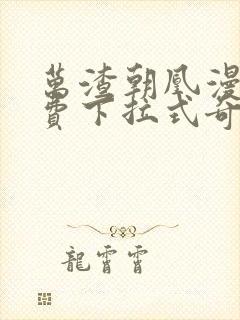 萬渣朝凰漫
費下拉式奇
龍霄霄